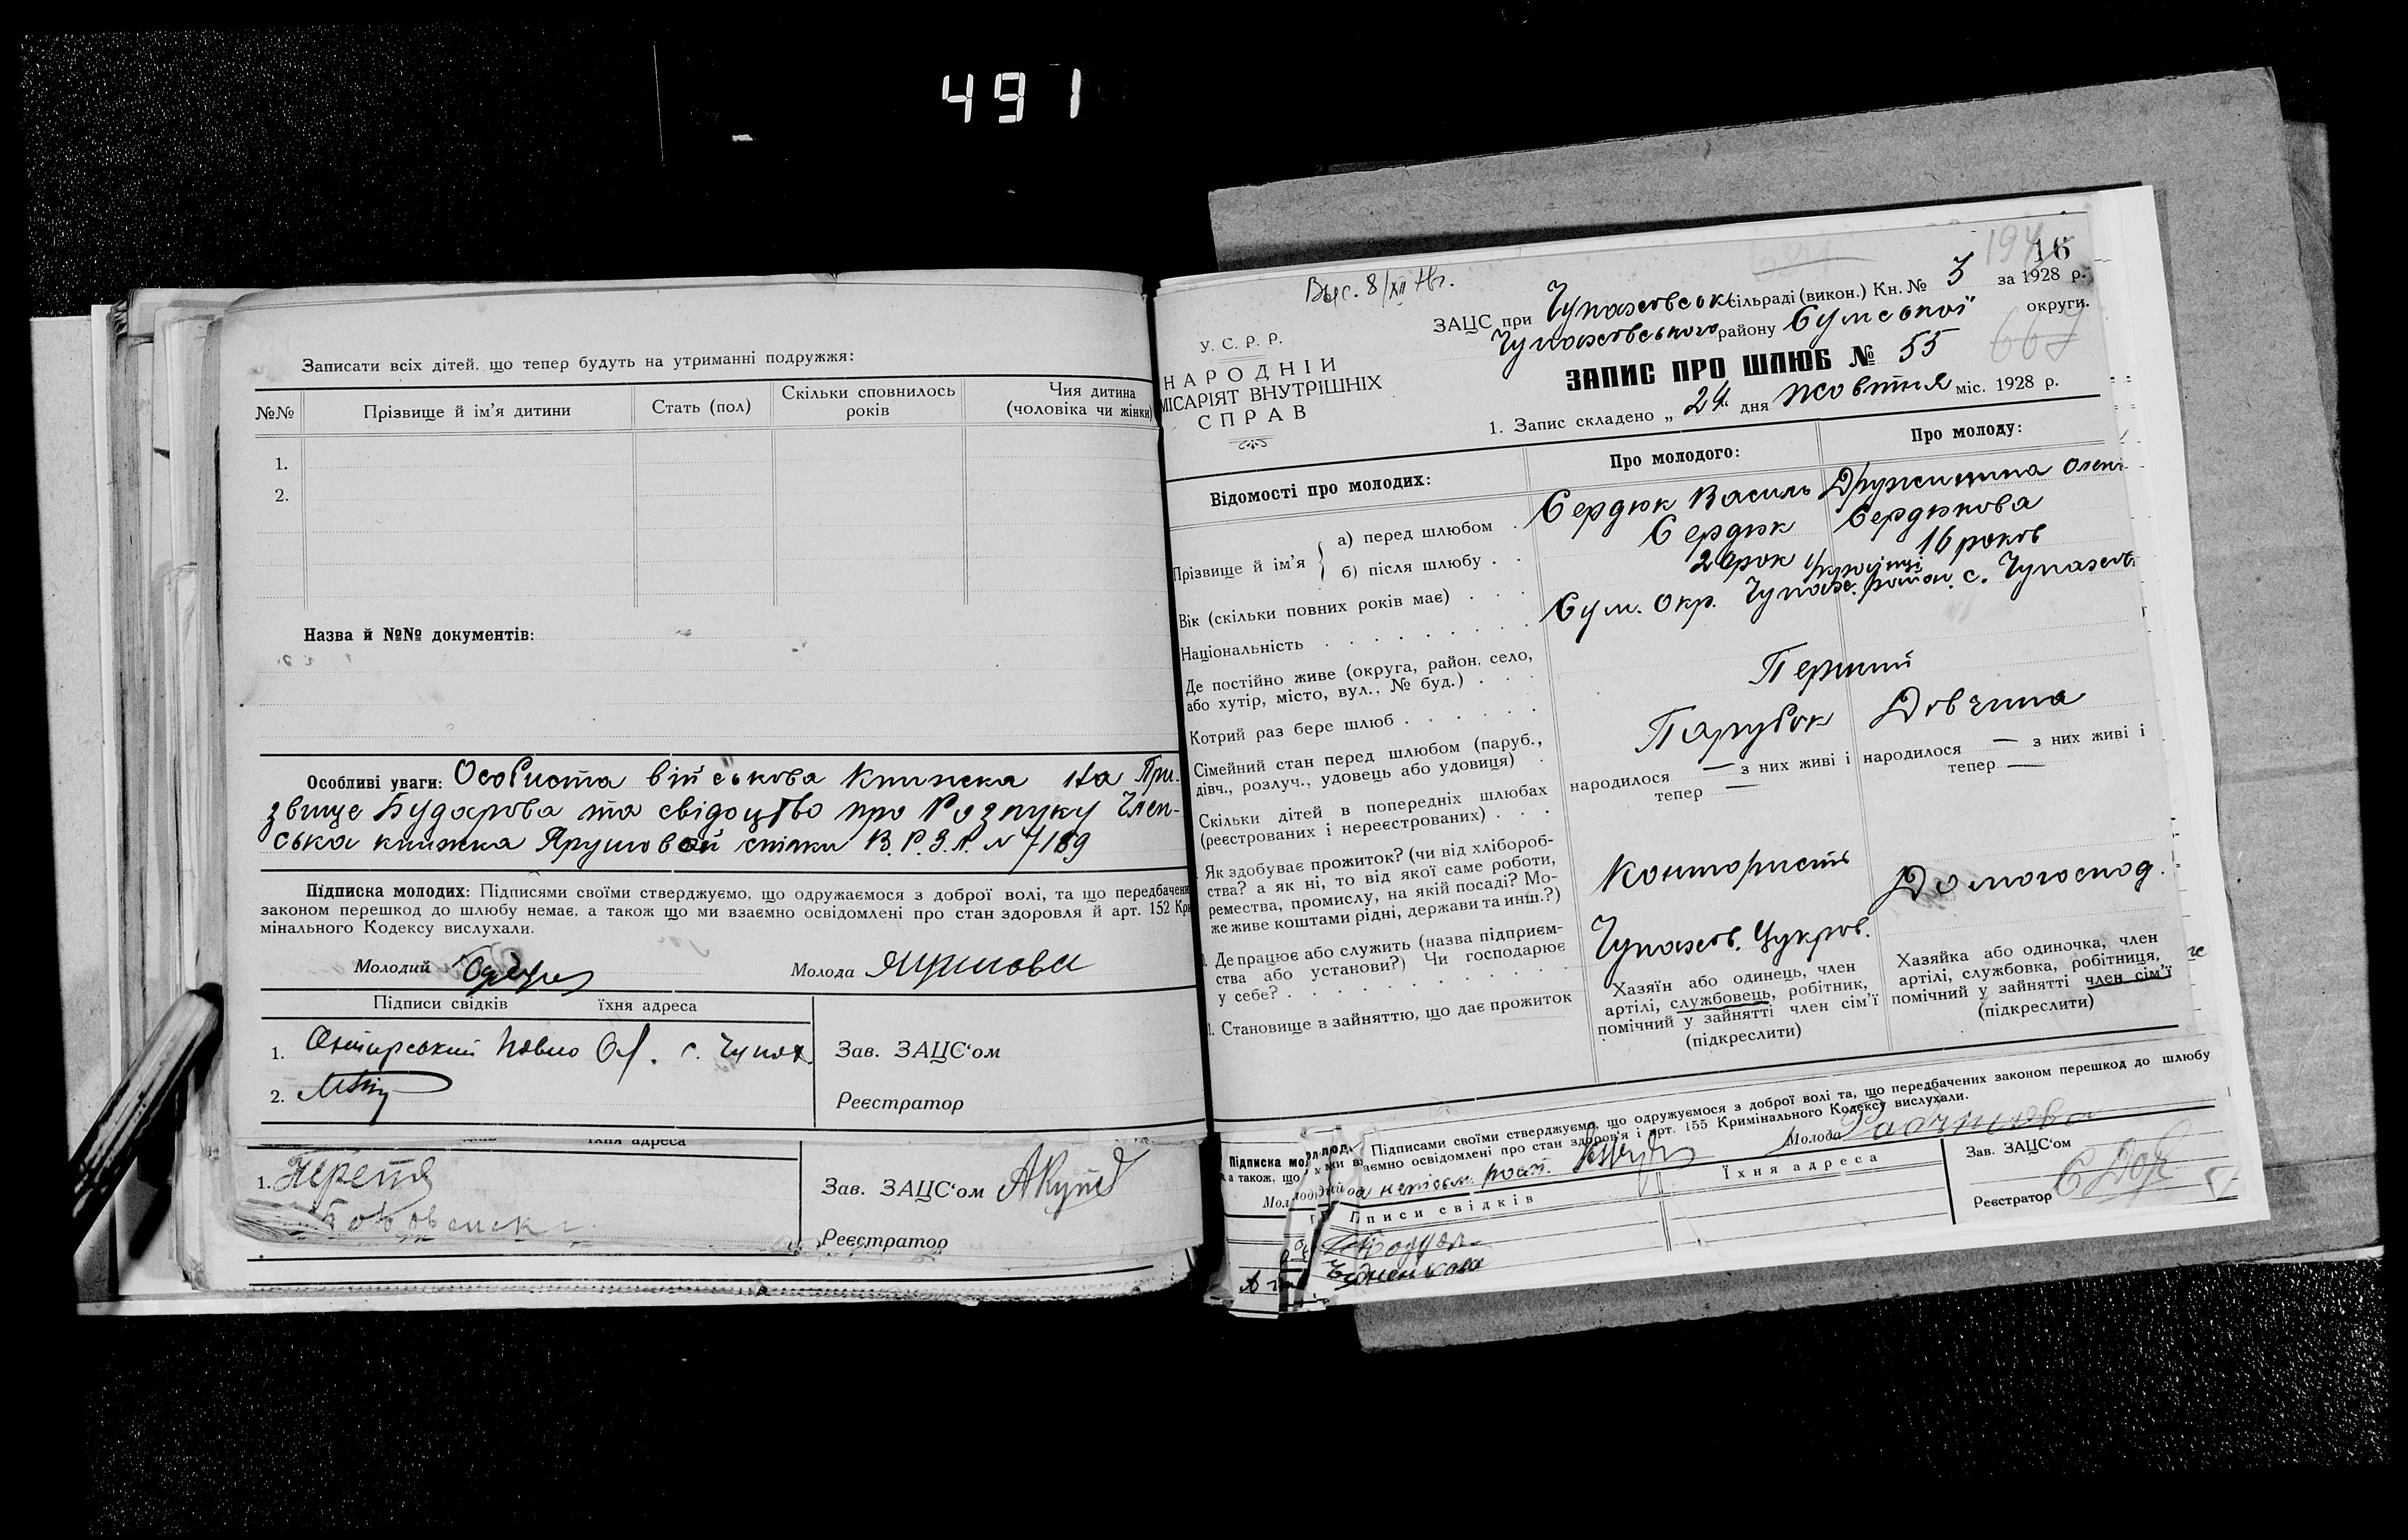 491
Записати всіх дітей, що тепер будуть на утриманні подружжя:
№№ Прізвище й ім'я дитини Стать (пол) Скільки сповнилось років Чия дитина (чоловіка чи жінки)
1.
2.
Назва й №№ документів:
Особливі уваги: Особиста військова книжка на Прі-
звище Бударова та свідоцтво про Розлуку Член-
ська книжка Ярушовой спілки В.Р.З.Л. №7189
Підписка молодих: Підписями своїми стверджуємо, що одружаємося з доброї волі, та що передбачени
законом перешкод до шлюбу немає, а також що ми взаємно освідомлені про стан здоровля й арт. 152 Кри
мінального Кодексу вислухали.
Молодий Молода
Підписи свідків їхня адреса
1. Павло с. Чупах.
2.
Зав. ЗАЦС'ом
Реєстратор
їхня адреса
1.
Зав. ЗАЦС'ом
Реєстратор
16
У. С. Р. Р.
НАРОДНІЙ
МІСАРІЯТ ВНУТРІШНІХ
СПРАВ
ЗАЦС при Чупахівськ сільраді (викон.) Кн. № 3 за 1928 р.
Чупахівського району Сумської округи.
ЗАПИС ПРО ШЛЮБ № 55
1. Запис складено „24" дня жовтня міс. 1928 р.
Відомості про молодих: Про молодого: Про молоду:
Прізвище й ім'я
а) перед шлюбом Сердюк Василь Дружинина Олен
б) після шлюбу Сердюк Сердюкова
Вік (скільки повних років має) 20 рок 16 років
Національність Українці
Де постійно живе (округа, район, село,
або хутір, місто, вул., № буд.) Сум. Окр. Чупах. район. с. Чупахів
Котрий раз бере шлюб Перший
Сімейний стан перед шлюбом (паруб.,
дівч., розлуч., удовець або удовиця) Парубок Дівчина
Скільки дітей в попередніх шлюбах
(реєстрованих і нереєстрованих)
народилося — з них живі і тепер —
народилося — з них живі і тепер —
Як здобуває прожиток? (чи від хлібороб-
ства? а як ні, то від якої саме роботи,
ремества, промислу, на якій посаді? Мо-
же живе коштами рідні, держави та инш.?)
Конторист Домогоспод.
Де працює або служить (назва підприєм-
ства або установи?) Чи господарює
у себе? Чупахів. Цукров.
Становище в зайняттю, що дає прожиток
Хазяїн або одинець, член
артілі, службовець, робітник,
помічний у зайнятті член сім'ї
(підкреслити)
Хазяйка або одиночка, член
артілі, службовка, робітниця,
помічний у зайнятті член сім'ї
(підкреслити)
Підписка мол
Підписами своїми стверджуємо, що одружуємося з доброї волі та, що передбачених законом перешкод до шлюбу
а також, що ми взаємно освідомлені про стан здоров'я і арт. 155 Кримінального Кодексу вислухали.
Молода
писи свідків Їхня адреса
Зав. ЗАЦС'ом
Реєстратор